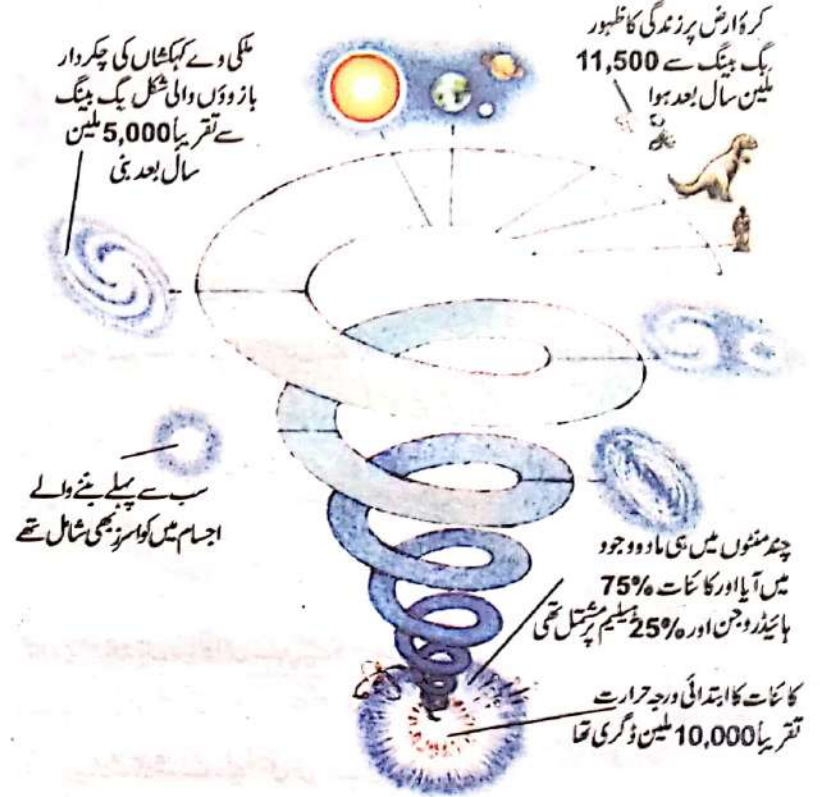 کرۂ ارض پر زندگی کا ظہور
بگ بینگ سے 11,500
ملین سال بعد ہوا
ملکی وے کہکشاں کی چکردار
بازوؤں والی شکل بگ بینگ
سے تقریباً 5,000 ملین
سال بعد بنی
سب سے پہلے بننے والے
اجسام میں کواسرز بھی شامل تھے
چند منٹوں میں ہی مادہ وجود
میں آیا اور کائنات %75
ہائیڈروجن اور %25 ہیلیم پر مشتمل تھی
کائنات کا ابتدائی درجہ حرارت
تقریباً 10,000 ملین ڈگری تھا